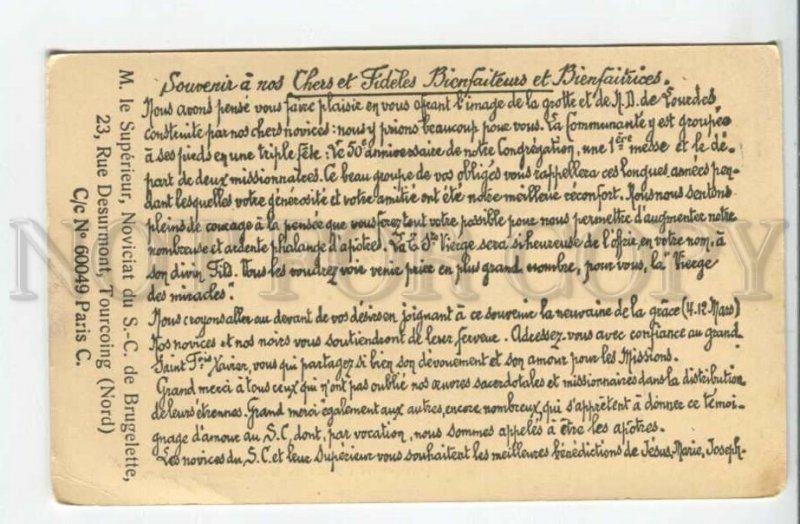 Souvenir à nos Chers et Fidèles Bienfaiteurs et Bienfaitrices.
Nous avons pensé vous faire plaisir en vous offrant l'image de la grotte et de N.D. de Lourdes
construite par nos chers novices : nous y prions beaucoup pour vous. La Communauté y est groupée
à ses pieds en une triple fête : le 50e anniversaire de notre Congrégation, une 1ère messe et le dé-
part de deux missionnaires. Ce beau groupe de vos obligés vous rappellera ces longues années pen-
dant lesquelles votre générosité et votre amitié ont été notre meilleur réconfort. Nous nous sentons
pleins de courage à la pensée que vous ferez tout votre possible pour nous permettre d'augmenter notre
nombreuse et ardente phalange d'apôtres. La T. Ste Vierge sera si heureuse de l'offrir, en votre nom, à
son divin Fils. Tous les voudrez voir venir prier en plus grand nombre, pour vous, la "Vierge
des miracles".
Nous croyons aller au devant de vos désirs en joignant à ce souvenir la neuvaine de la grâce (4-12 Mars)
Nos novices et nos noirs vous soutiendront de leur ferveur. Adressez-vous avec confiance au grand
Saint Fçois Xavier, vous qui partagez si bien son dévouement et son amour pour les Missions.
Grand merci à tous ceux qui n'ont pas oublié nos œuvres sacerdotales et missionnaires dans la distribution
de leurs étrennes. Grand merci également aux autres, encore nombreux, qui s'apprêtent à donner ce témoi-
gnage d'amour au S.C. dont, par vocation, nous sommes appelés à être les apôtres.
Les novices du S.C. et leur Supérieur vous souhaitent les meilleures bénédictions de Jésus, Marie, Joseph.
M. le Supérieur, Noviciat du S.-C. de Brugelette,
23, Rue Desurmont, Tourcoing (Nord)
C/c N° 60049 Paris C.
NOT FOR COPY